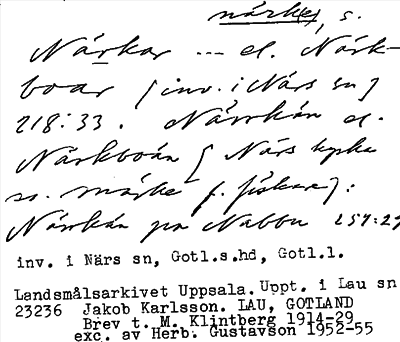 närk(e), s.
Närkar --- el. Närk-
boar [inv. i Närs sn]
218:33. Närrkån el.
Närkboån [Närs kyrka
so. märke f. fiskare]:
Närrkån pa Nabbu 254:29
inv. i Närs sn, Gotl.s.hd, Gotl.l.
Landsmålsarkivet Uppsala. Uppt. i Lau sn
23236 Jakob Karlsson. LAU, GOTLAND
Brev t. M. Klintberg 1914-29
exc. av Herb. Gustavson 1952-55